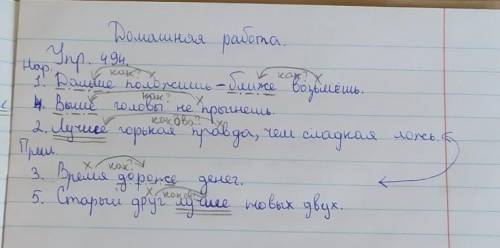 Домашняя работа.
Упр. 494.
Нар.
как? как?
1. Дальше положишь – ближе возьмёшь.
как?
4. Выше головы не прыгнешь.
какова?
2. Лучше горькая правда, чем сладкая ложь.
Прил.
как?
3. Время дороже денег.
каков?
5. Старый друг лучше новых двух.